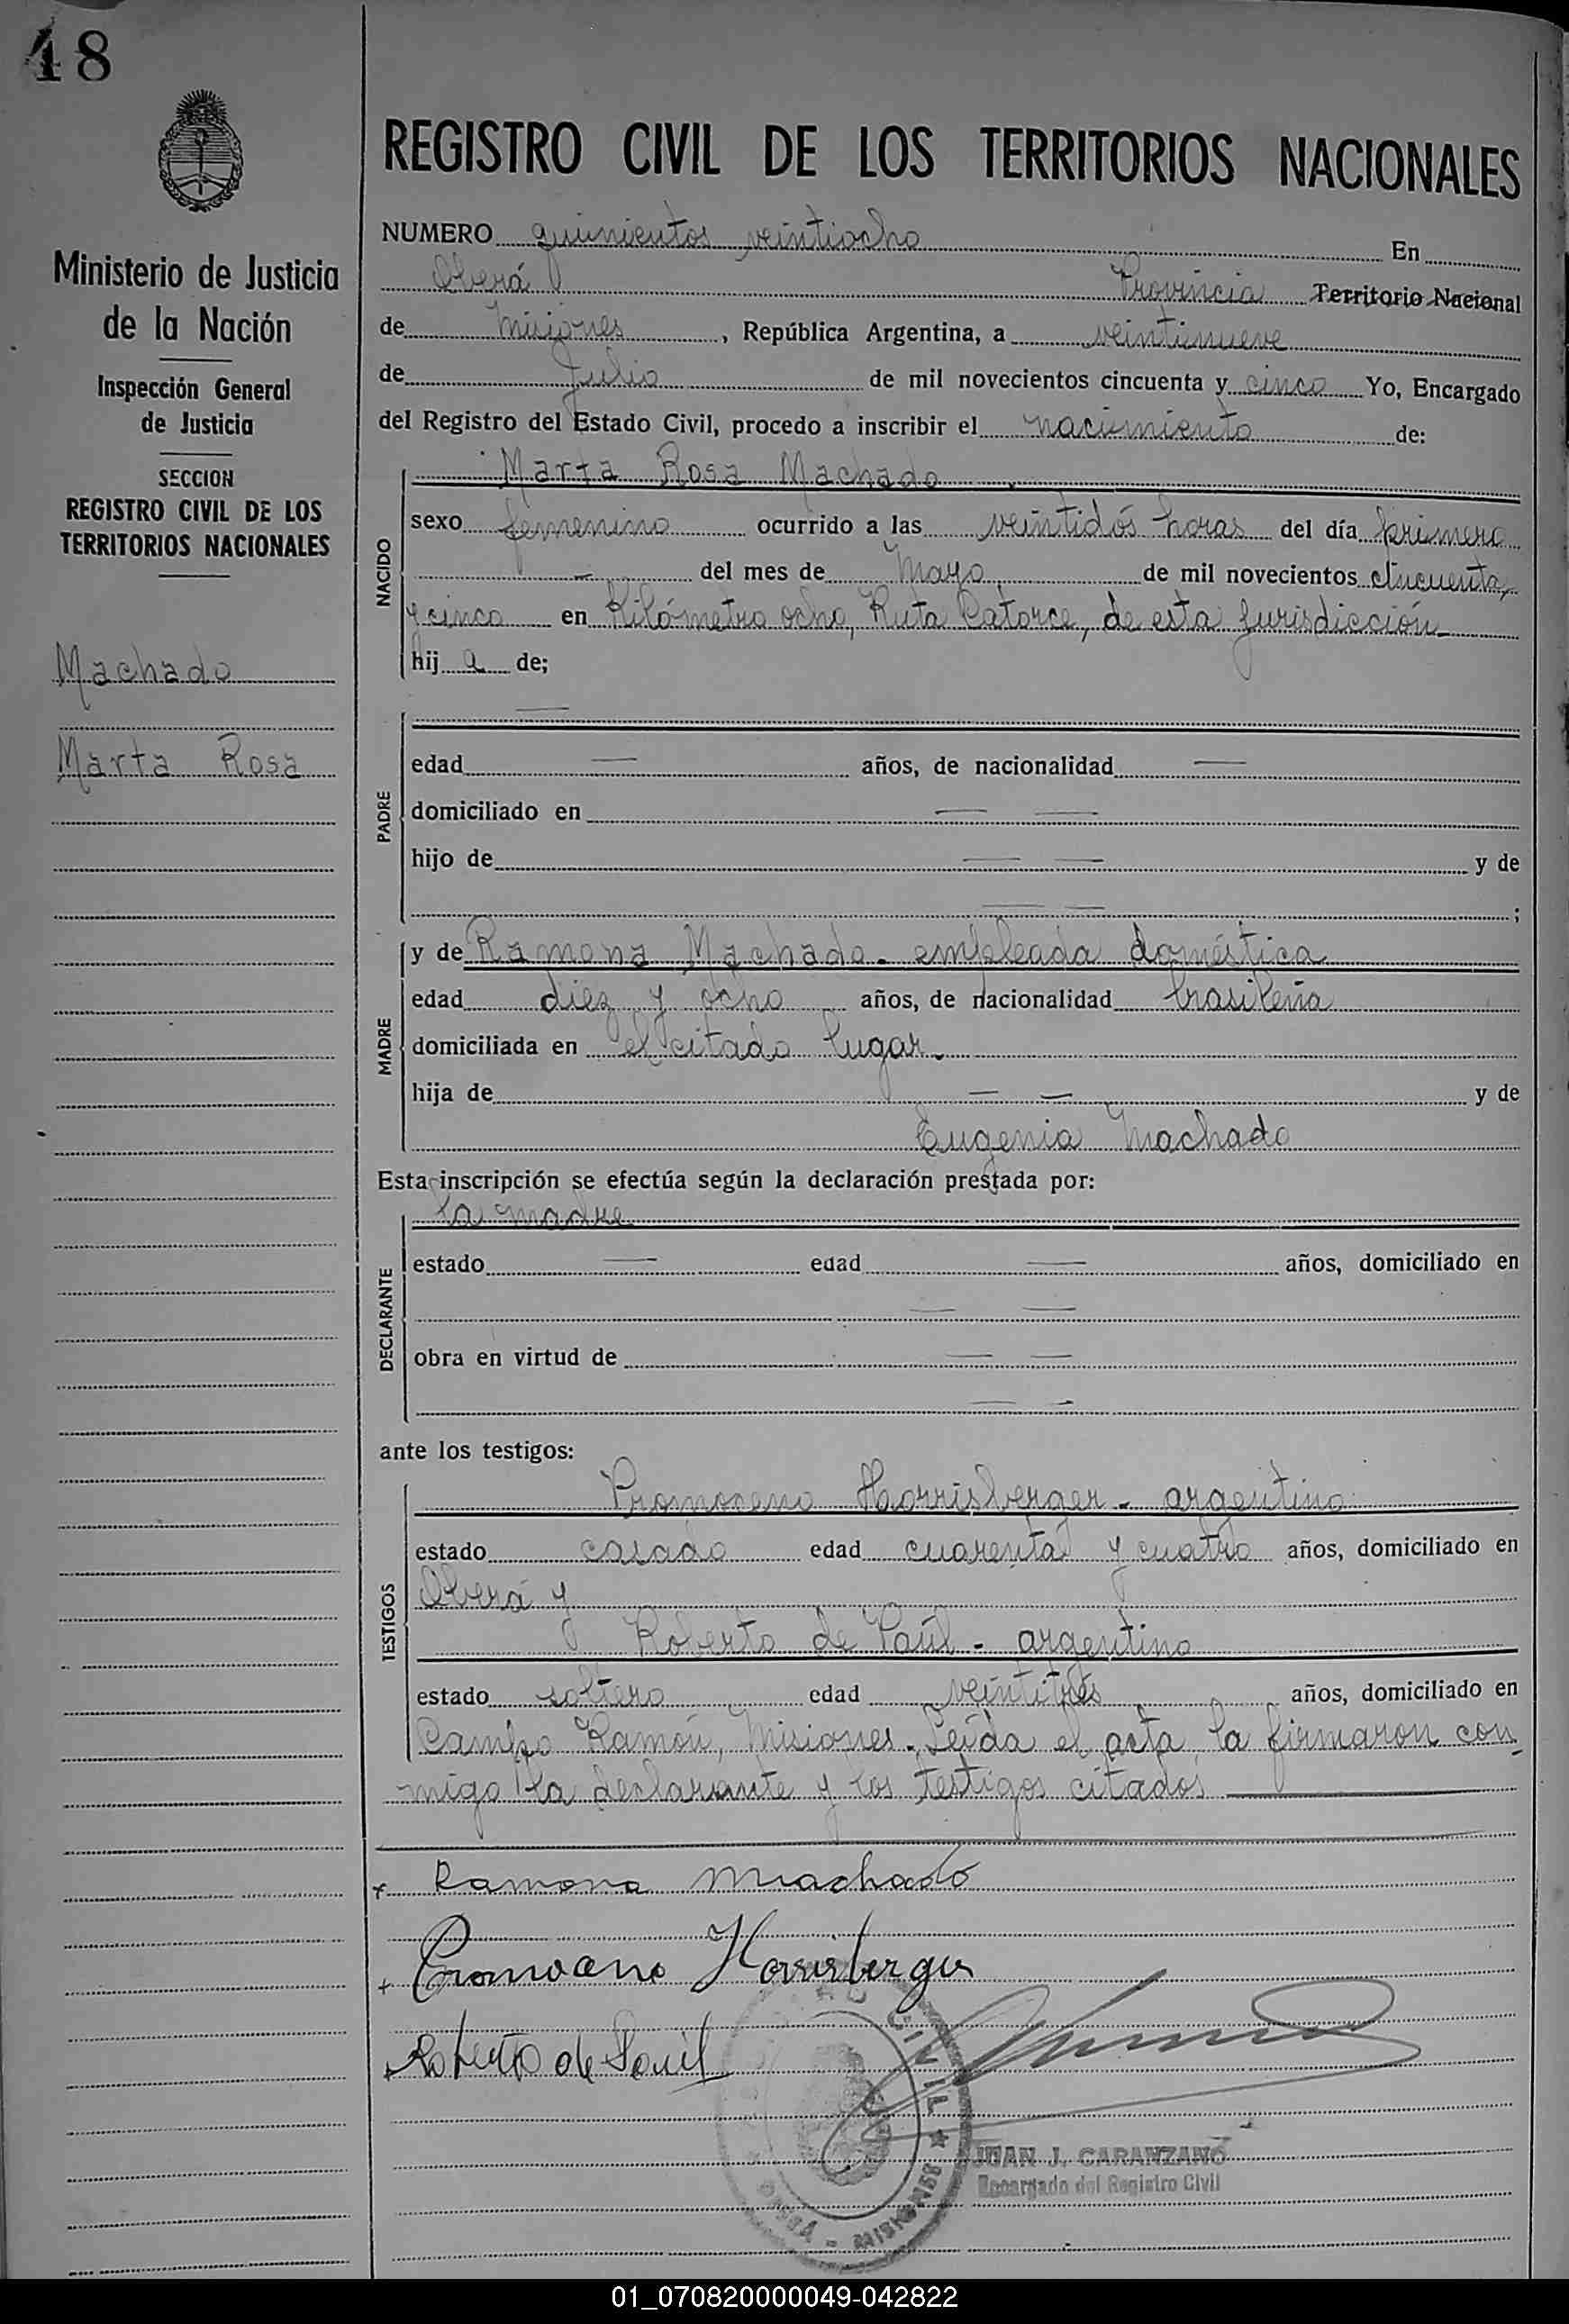 48
Ministerio de Justicia
de la Nación
Inspección General
de Justicia
SECCION
REGISTRO CIVIL DE LOS
TERRITORIOS NACIONALES
Machado
Marta Rosa
REGISTRO CIVIL DE LOS TERRITORIOS NACIONALES
NUMERO quinientos veintiocho En
Oberá Provincia Territorio Nacional
de Misiones, República Argentina, a veintinueve
de Julio de mil novecientos cincuenta y cinco Yo, Encargado
del Registro del Estado Civil, procedo a inscribir el nacimiento de:
NACIDO
Marta Rosa Machado
sexo femenino ocurrido a las veintidós horas del día primero
— del mes de Mayo de mil novecientos cincuenta
y cinco en Kilómetro ocho, Ruta Catorce, de esta jurisdicción
hij a de;
PADRE
—
edad — años, de nacionalidad —
domiciliado en — —
hijo de — — y de
— — ;
MADRE
y de Ramona Machado - empleada doméstica
edad diez y ocho años, de nacionalidad brasileña
domiciliada en el citado lugar.
hija de — — y de
Eugenia Machado
Esta inscripción se efectúa según la declaración prestada por:
DECLARANTE
la madre
estado — edad — años, domiciliado en
— —
obra en virtud de — —
— -
ante los testigos:
TESTIGOS
Horrisberger - argentino
estado casado edad cuarenta y cuatro años, domiciliado en
Oberá y
Roberto de Paul - argentino
estado soltero edad veintitrés años, domiciliado en
Campo Ramón, Misiones. Leída el acta, la firmaron con
migo la declarante y los testigos citados
Ramona Machado
Horrisberger
Roberto de Paul
CIVIL
MISIONES
JUAN J. CARANZANO
Encargado del Registro Civil
01_070820000049-042822